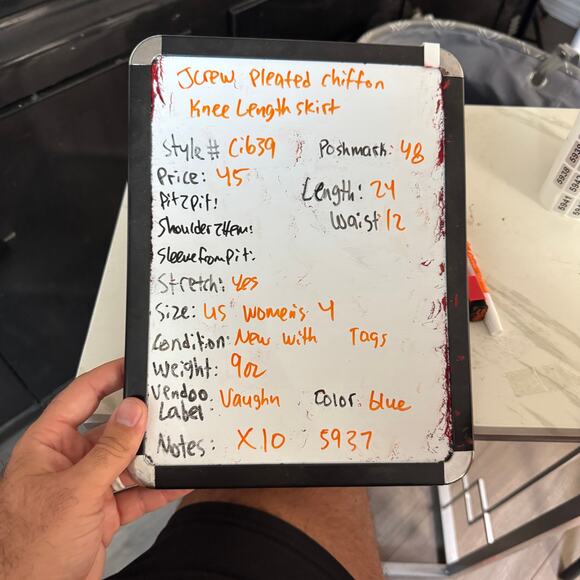 Jcrew Pleated chiffon
Knee Length skirt
Style# Cib39 Poshmark: 48
Price: 45
Length: 24
Pit2Pit:
Waist 12
Shoulder2Hem:
Sleeve from pit:
Stretch: Yes
Size: US Women's 4
Condition: New with Tags
Weight: 9oz
Vendoo Label: Vaughn Color: blue
Notes: X10 5937
5938
5941
5942